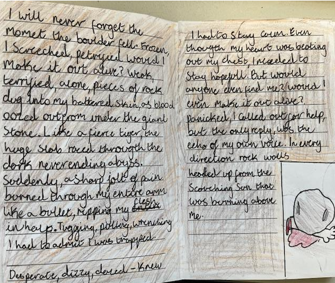 I will never forget the
momet the boulder fell. Frozen,
I screeched, petrified would I
make it out alive? Weak,
terrified, alone, pieces of rock
dug into my battered skin, as blood
oozed out from under the giant
stone. Like a fierce tiger, the
huge slab raced through the
dark neverending abyss.
Suddenly, a sharp jolt of pain
burned through my entire arm
like a bullet, ripping my flesh
in half. Tugging, pulling, wrenching
I had to admit I was trapped
Desperate, dizzy, dazed - knew
I had to stay calm. Even
though my heart was beating
out my chest, I needed to
stay hopefull. But would
anyone even find me? Would I
even make it out alive?
panicked, I called out for help,
but the only reply, was the
echo of my own voice. In every
direction rock walls
heated up from the
Scorching Sun that
was burning above
me.